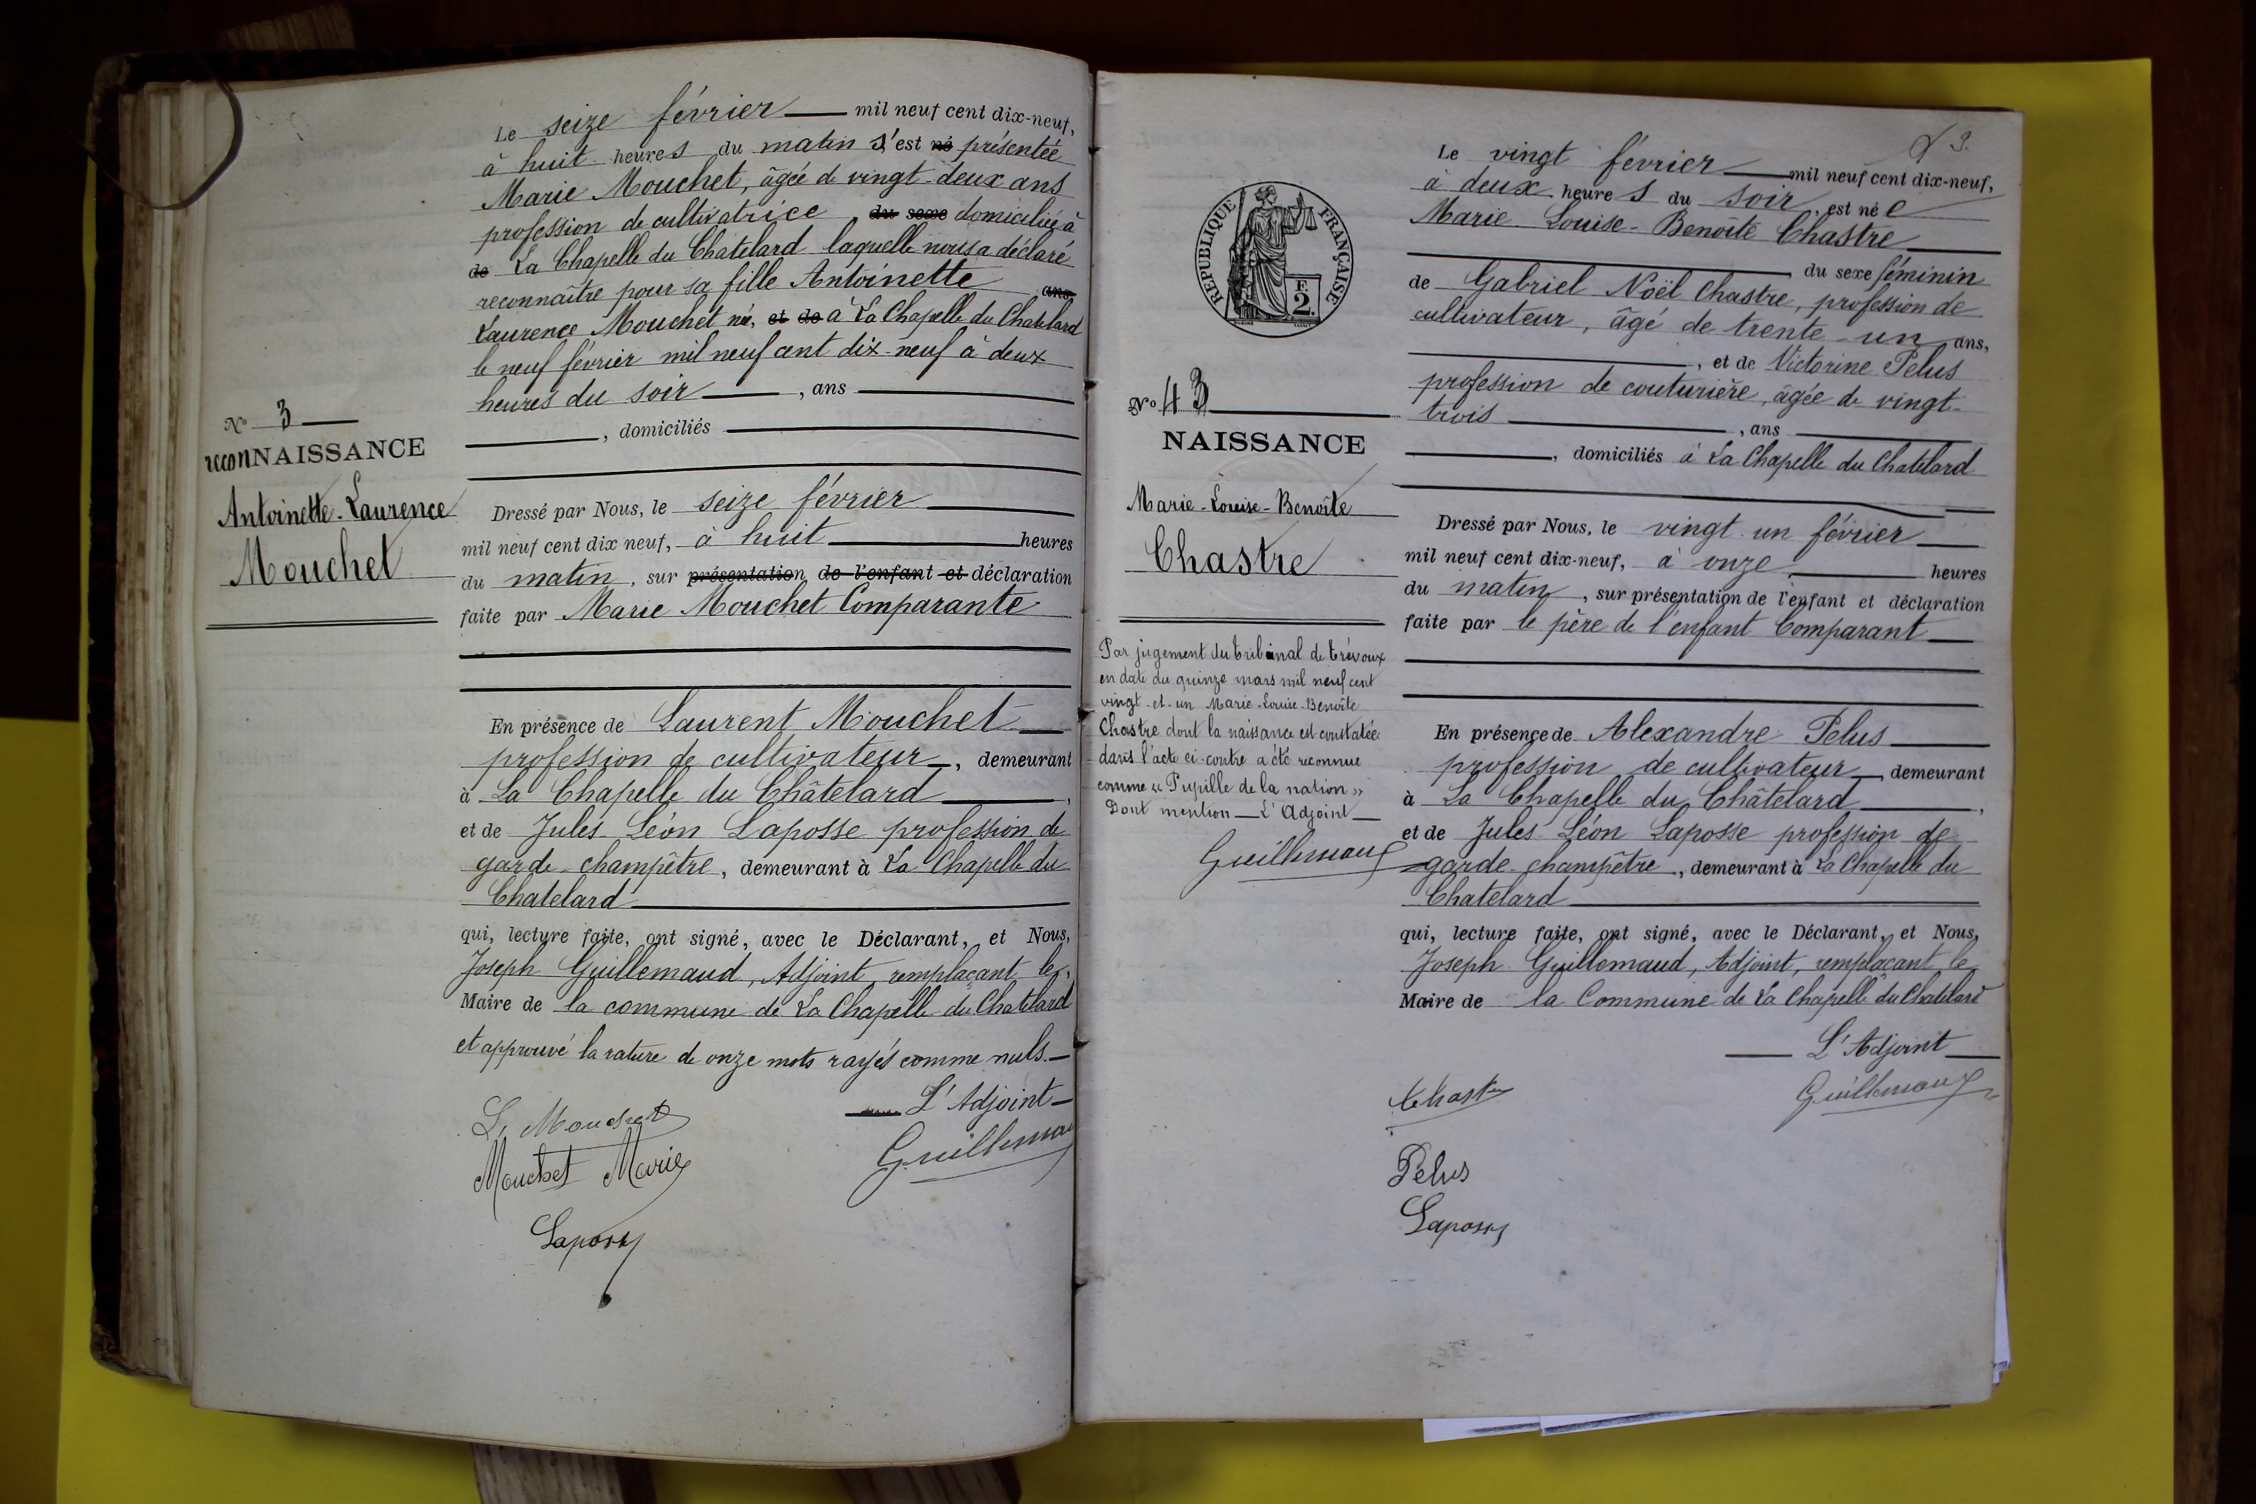 Le seize février mil neuf cent dix-neuf,
à huit heures du matin s'est né présentée
Marie Mouchet, âgée de vingt-deux ans
profession de cultivatrice, du sexe domiciliée à
de La Chapelle du Chatelard laquelle nous a déclaré
reconnaître pour sa fille Antoinette ans,
Laurence Mouchet née, et de à La Chapelle du Chatelard
le neuf février mil neuf cent dix-neuf à deux
heures du soir, ans
, domiciliés
No 3
reconNAISSANCE
Antoinette-Laurence
Mouchet
Dressé par Nous, le seize février
mil neuf cent dix neuf, à huit heures
du matin, sur présentation de l'enfant et déclaration
faite par Marie Mouchet Comparante
En présence de Laurent Mouchet
profession de cultivateur, demeurant
à La Chapelle du Châtelard,
et de Jules Léon Laposse profession de
garde-champêtre, demeurant à La Chapelle du
Chatelard
qui, lecture faite, ont signé, avec le Déclarant, et Nous,
Joseph Guillemaud, Adjoint remplaçant le
Maire de la commune de La Chapelle du Chatelard
et approuvé la rature de onze mots rayés comme nuls.
L'Adjoint
L. Mouchet
Guillemaud
Mouchet Marie
Laposse
3.
Le vingt février mil neuf cent dix-neuf,
à deux heures du soir, est née
Marie-Louise-Benoîte Chastre
du sexe féminin
de Gabriel Noël Chastre, profession de
cultivateur, âgé de trente-un ans,
, et de Victorine Pelus
profession de couturière, âgée de vingt-
trois, ans
, domiciliés à La Chapelle du Chatelard
REPUBLIQUE FRANÇAISE
F.
2.
No 43
NAISSANCE
Marie-Louise-Benoîte
Chastre
Par jugement du tribunal de Trévoux
en date du quinze mars mil neuf cent
vingt-et-un Marie-Louise-Benoîte
Chastre dont la naissance est constatée
dans l'acte ci-contre a été reconnue
comme « Pupille de la nation »
Dont mention L'Adjoint
Guillemaud
Dressé par Nous, le vingt-un février
mil neuf cent dix-neuf, à onze heures
du matin, sur présentation de l'enfant et déclaration
faite par le père de l'enfant Comparant
En présence de Alexandre Pelus
profession de cultivateur demeurant
à La Chapelle du Châtelard,
et de Jules Léon Laposse profession de
garde-champêtre, demeurant à La Chapelle du
Chatelard
qui, lecture faite, ont signé, avec le Déclarant, et Nous,
Joseph Guillemaud, Adjoint, remplaçant le
Maire de la Commune de La Chapelle du Chatelard
L'Adjoint
Chastre
Guillemaud
Pelus
Laposse